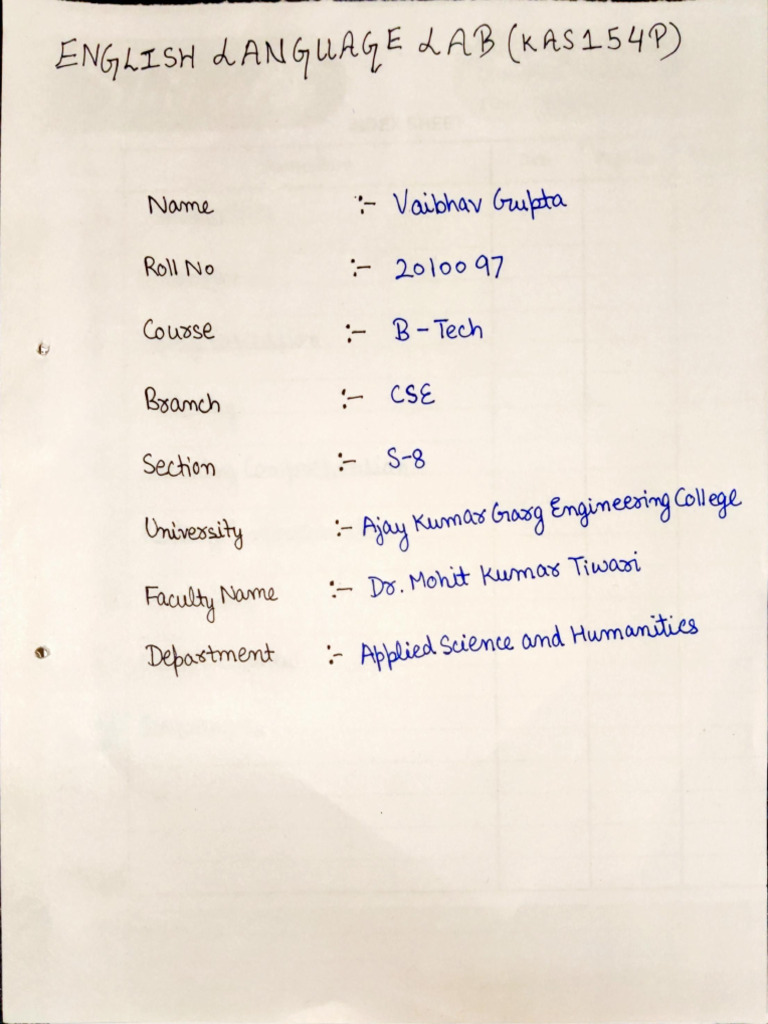 ENGLISH LANGUAGE LAB (KAS154P)
Name :- Vaibhav Gupta
Roll No :- 2010097
Course :- B-Tech
Branch :- CSE
Section :- S-8
University :- Ajay Kumar Garg Engineering College
Faculty Name :- Dr. Mohit Kumar Tiwari
Department :- Applied Science and Humanities